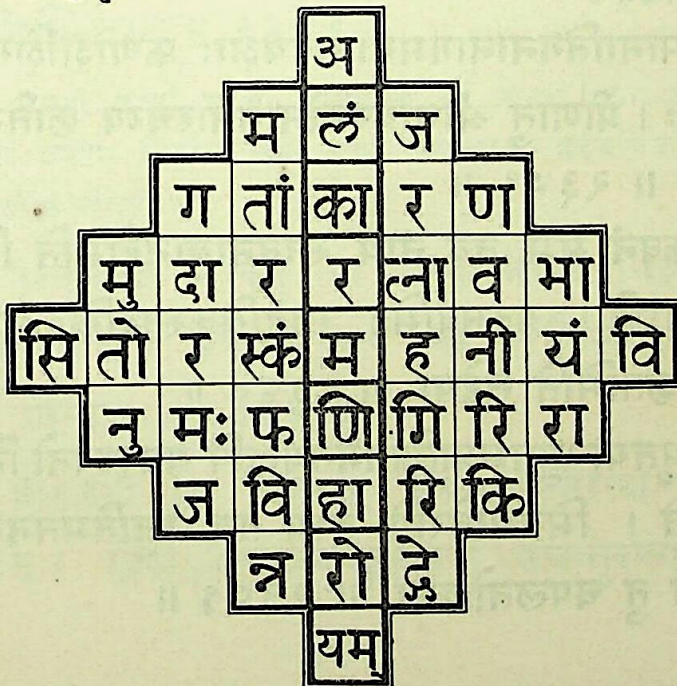 अ
म लं ज
ग तां का र ण
मु दा र र त्ना व भा
सि तो र स्कं म ह नी यं वि
नु मः फ णि गि रि रा
ज वि हा रि कि
न्न रो द्गे
यम्